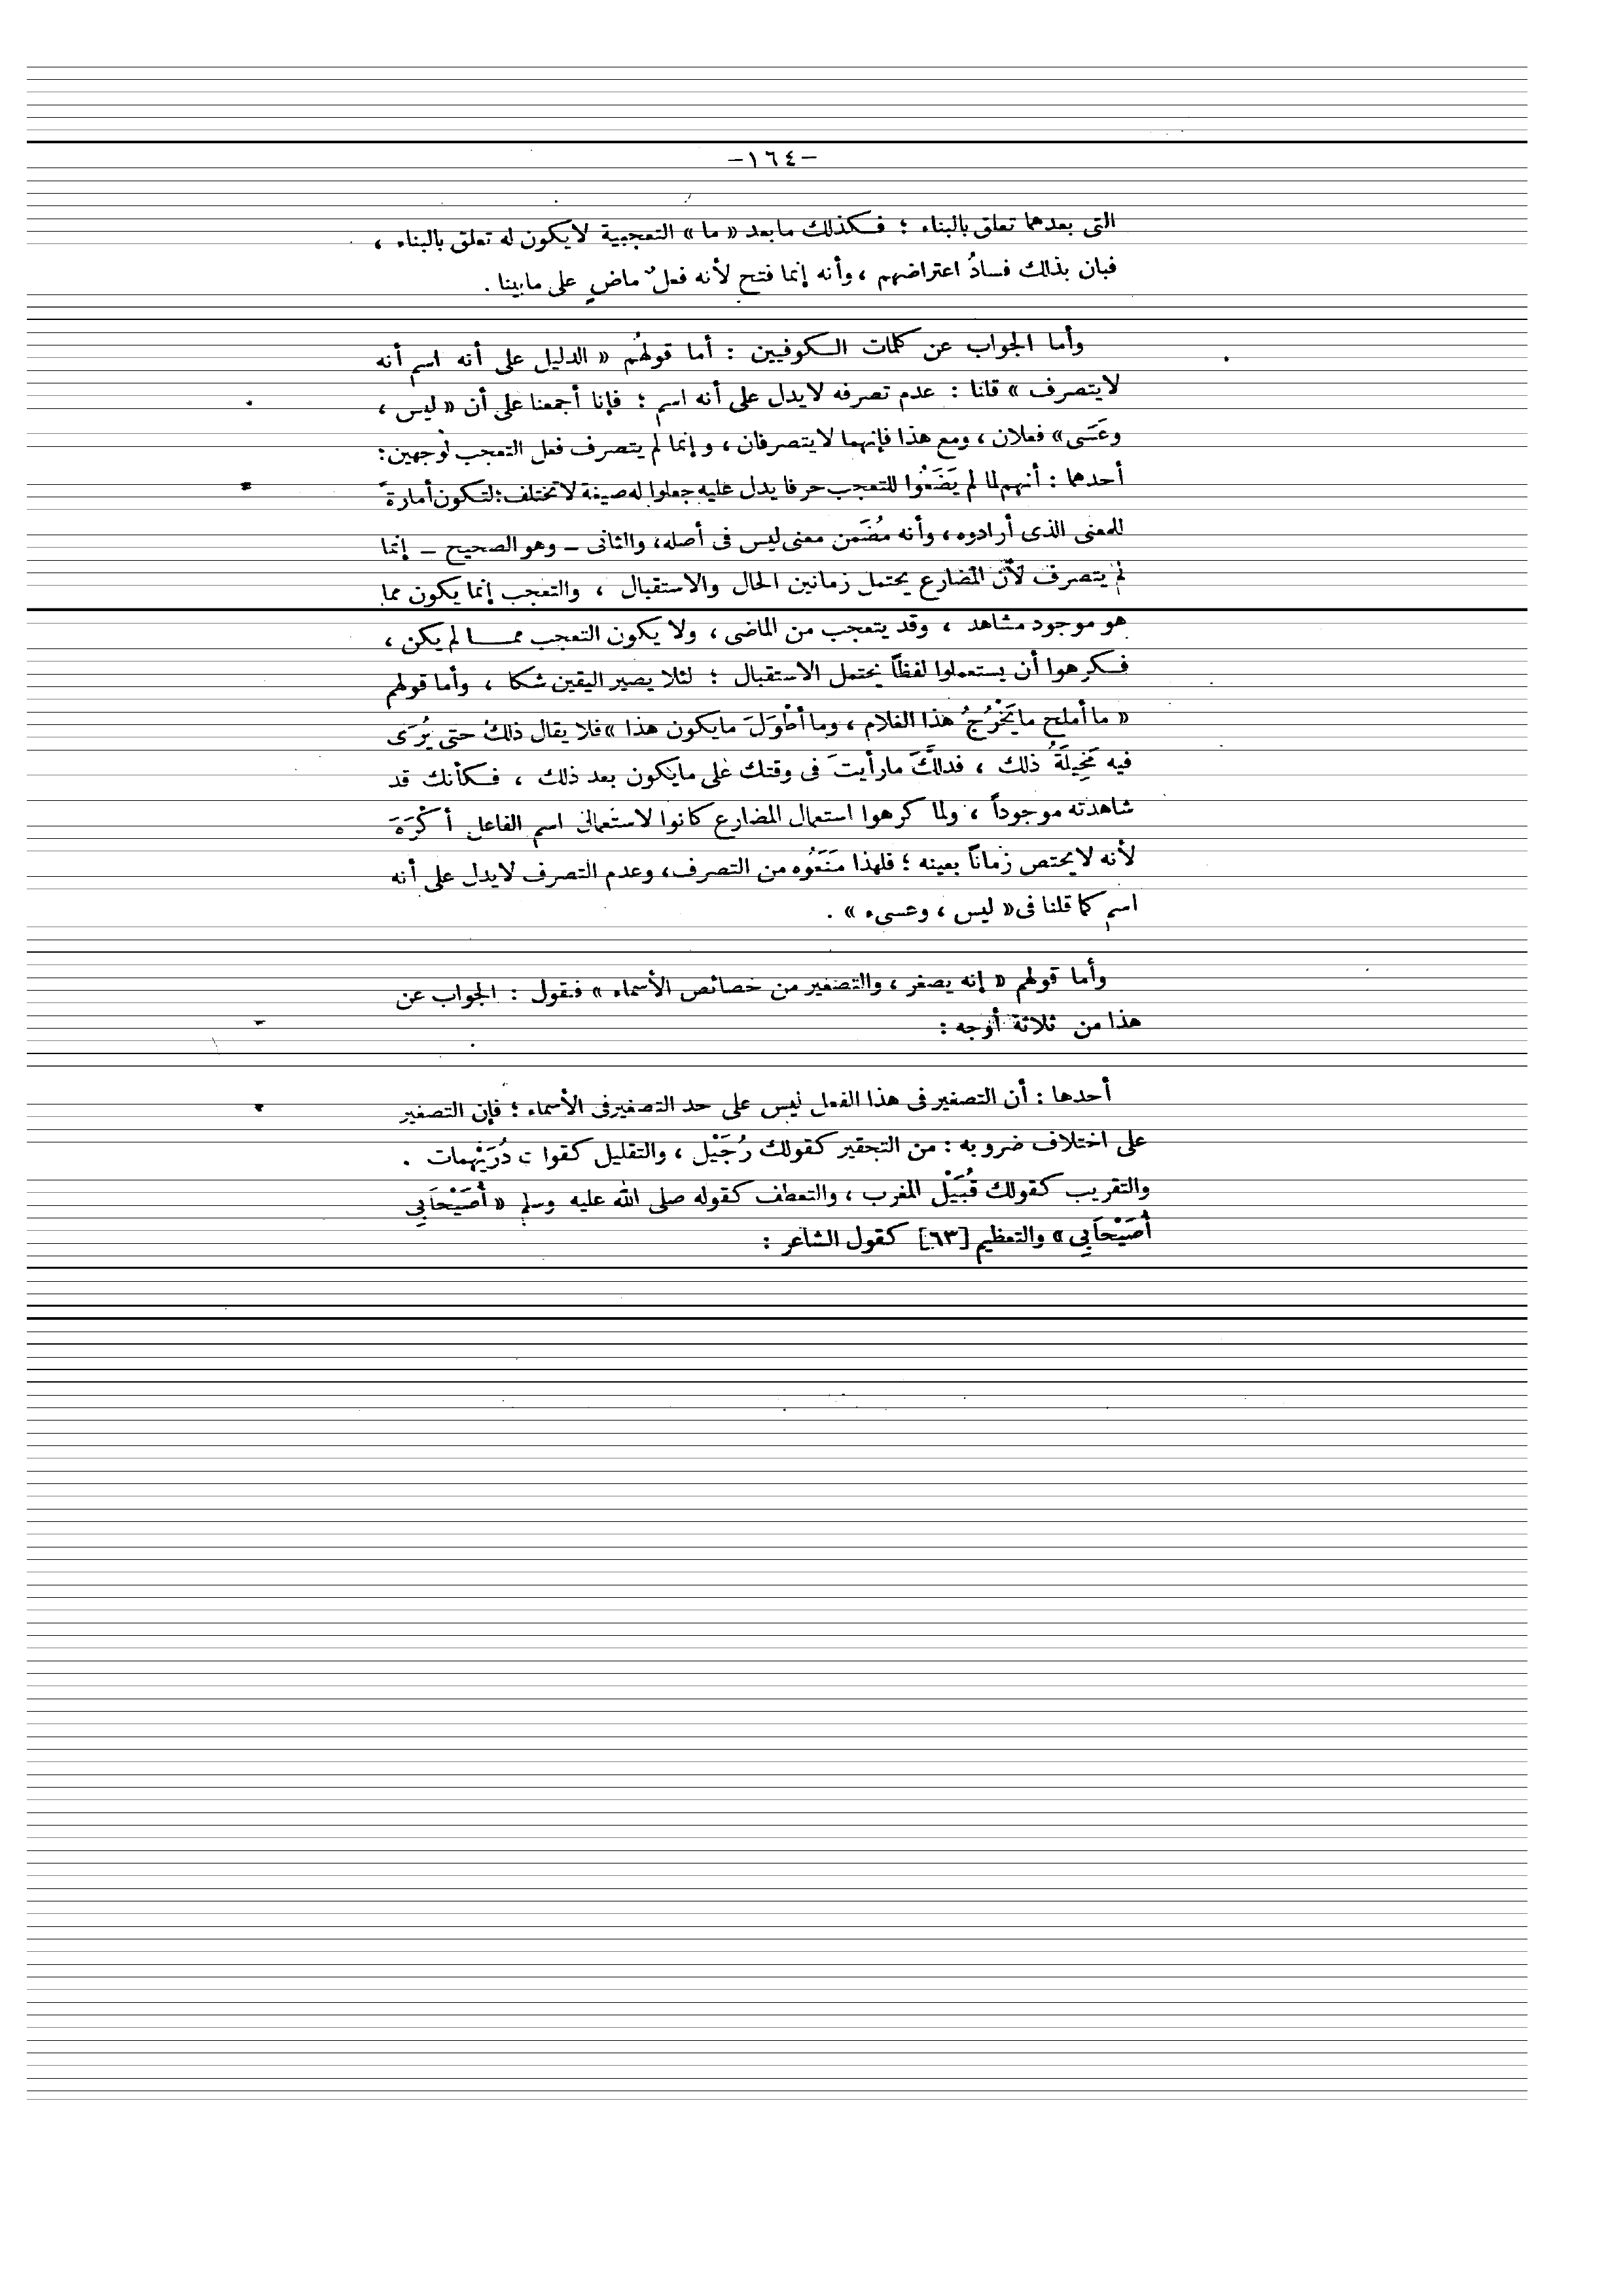 -١٦٤-
التى بعدها تعلق بالبناء ؛ فكذلك مابعد « ما » التعجبية لايكون له تعلق بالبناء ،
فبان بذلك فسادُ اعتراضهم ، وأنه إنما فتح لأنه فعلٌ ماضٍ على مابينا .
وأما الجواب عن كلمات الكوفيين : أما قولهُم « الدليل على أنه اسم أنه
لايتصرف » قلنا : عدم تصرفه لايدل على أنه اسم ؛ فإنا أجمعنا على أن « ليس ،
وعَسَى» فعلان ، ومع هذا فإنهما لايتصرفان ، وإنما لم يتصرف فعل التعجب لوجهين:
أحدها : أنهم لما لم يَضَعُوا للتعجب حرفا يدل عليه جعلوا له صيغة لاتختلف؛ لتكون أمارةً
للمعنى الذى أرادوه ، وأنه مُضَمن معنى ليس فى أصله، والثانى – وهو الصحيح – إنما
لم يتصرف لأن المضارع يحتمل زمانين الحال والاستقبال ، والتعجب إنما يكون مما
هو موجود مشاهد ، وقد يتعجب من الماضى ، ولا يكون التعجب ممـــا لم يكن ،
فكرهوا أن يستعملوا لفظاً يحتمل الاستقبال ؛ لئلا يصير اليقين شكا ، وأما قولهم
« ما أملح مايَخْرُجُ هذا الغلام ، وما أطْوَلَ مايكون هذا » فلا يقال ذلك حتى يُرَى
فيه مَخِيلَةُ ذلك ، فدلَّكَ مارأيتَ فى وقتك على مايكون بعد ذلك ، فكأنك قد
شاهدته موجوداً ، ولما كرهوا استعمال المضارع كانوا لاستعمال اسم الفاعل أكْرَهَ
لأنه لايختص زماناً بعينه ؛ فلهذا مَنَعُوه من التصرف، وعدم التصرف لايدل على أنه
اسم كما قلنا فى« ليس ، وعسى» .
وأما قولهم « إنه يصغر ، والتصغير من خصائص الأسماء » فنقول : الجواب عن
هذا من ثلاثة أوجه :
أحدها : أن التصغير فى هذا الفعل ليس على حد التصغير فى الأسماء ؛ فإن التصغير
على اختلاف ضروبه : من التحقير كقولك رُجَيْل ، والتقليل كقولك دُرَيْهِمات .
والتقريب كقولك قُبَيْل المغرب ، والتعطف كقوله صلى الله عليه وسلم « أُصَيْحَابِي
أُصَيْحَابِي » والتعظيم [٦٣] كقول الشاعر :